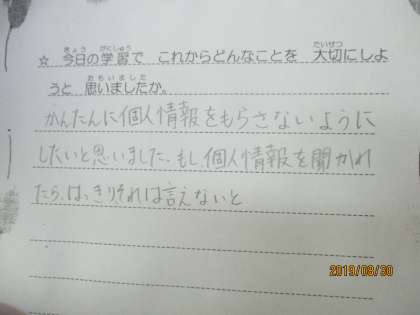 ☆ 今日の学習で これからどんなことを 大切にしよ
うと 思いましたか。
かんたんに個人情報をもらさないように
したいと思いました。もし、個人情報を聞かれ
たら、はっきりそれは言えないと
2019/08/30